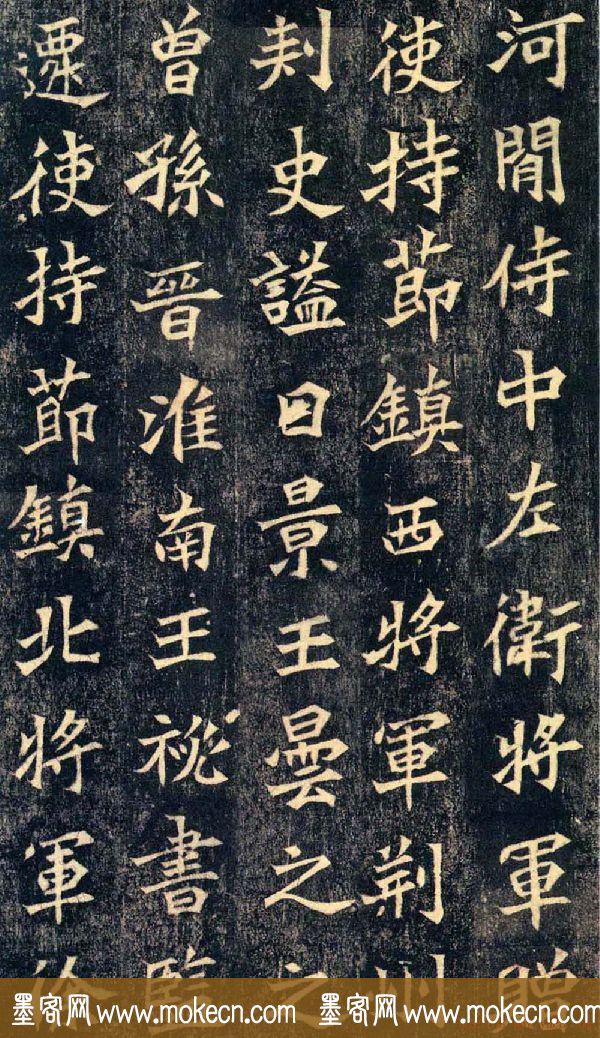 河閒侍中左衛將軍贈
使持節鎮西將軍荊州
刺史謚曰景王曇之
曾孫晉淮南王祕書監
遷使持節鎮北將軍徐
墨客网 www.mokecn.com 墨客网 www.mokecn.com